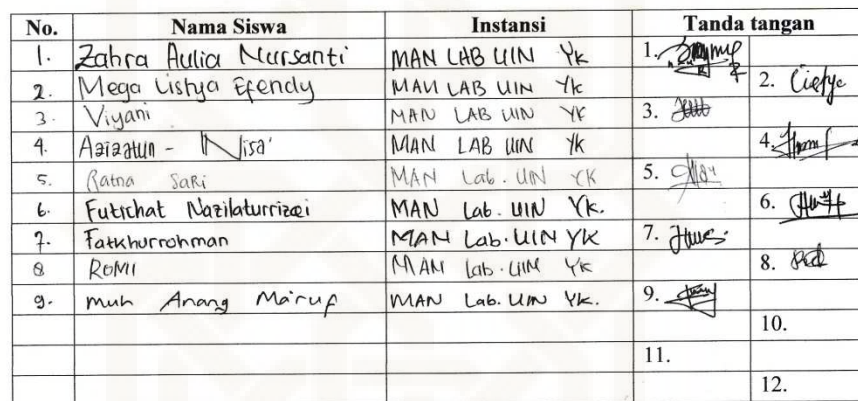 No. Nama Siswa Instansi Tanda tangan
1. Zahra Aulia Nursanti MAN LAB UIN Yk 1.
2. Mega Listya Efendy MAN LAB UIN Yk 2.
3. Viyani MAN LAB UIN YK 3.
4. Azizatun - Nisa' MAN LAB UIN Yk 4.
5. Ratna SaRi MAN Lab. UIN YK 5.
6. Futichat Nazilaturrizqi MAN Lab. UIN YK. 6.
7. Fatkhurrohman MAN Lab. UIN YK 7.
8 ROMI MAN Lab. UIN YK 8.
9. Muh Anang Ma'ruf MAN Lab. UIN YK. 9.
10.
11.
12.